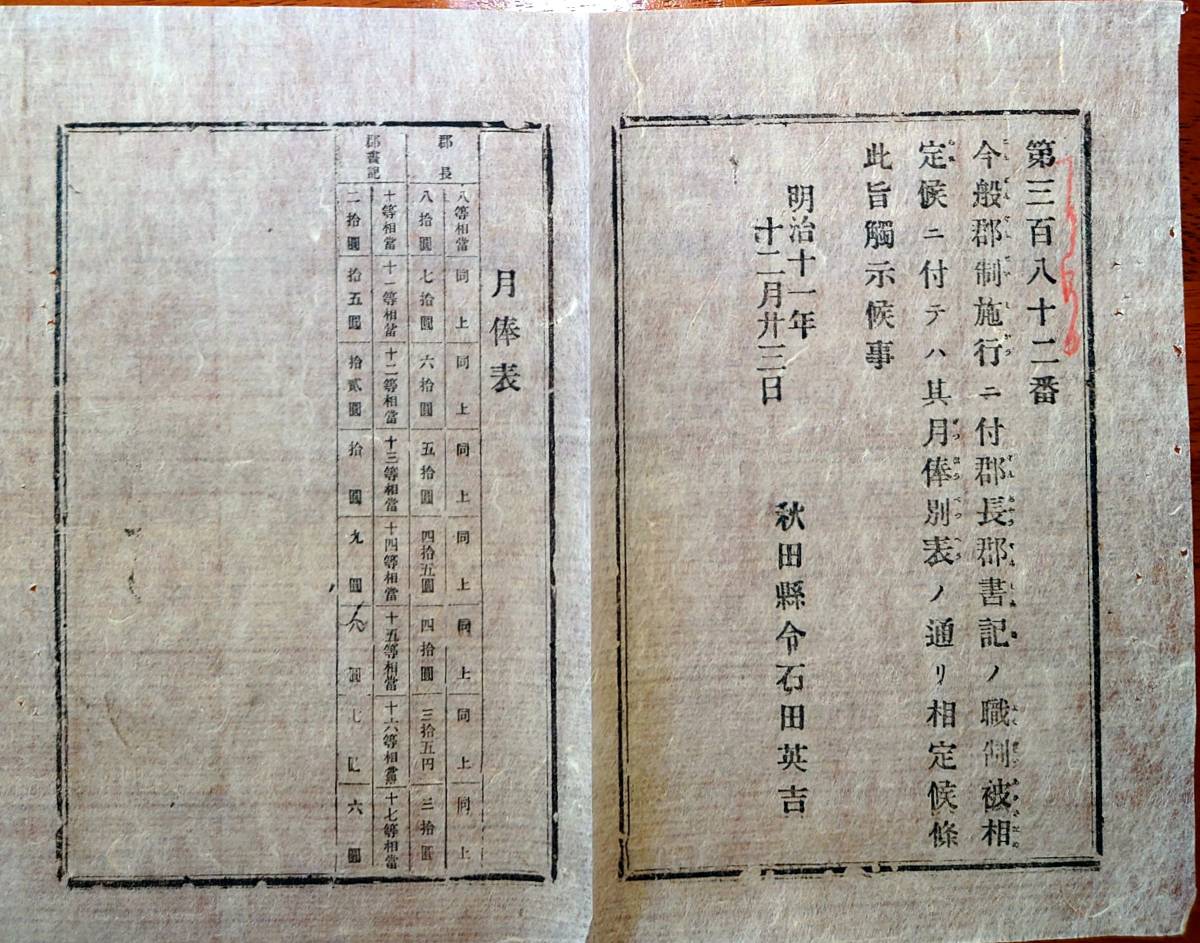 第三百八十二番
今般郡制施行ニ付郡長郡書記ノ職制被相
定候ニ付テハ其月俸別表ノ通リ相定候條
此旨觸示候事
明治十一年
十二月廿三日
秋田縣令石田英吉
月俸表
郡長
八等相當 同上 同上 同上 同上 同上 同上 同上
八拾圓 七拾圓 六拾圓 五拾圓 四拾五圓 四拾圓 三拾五円 三拾圓
郡書記
十等相當 十一等相當 十二等相當 十三等相當 十四等相當 十五等相當 十六等相當 十七等相當
二拾圓 拾五圓 拾貳圓 拾圓 九圓 八圓 七 六圓